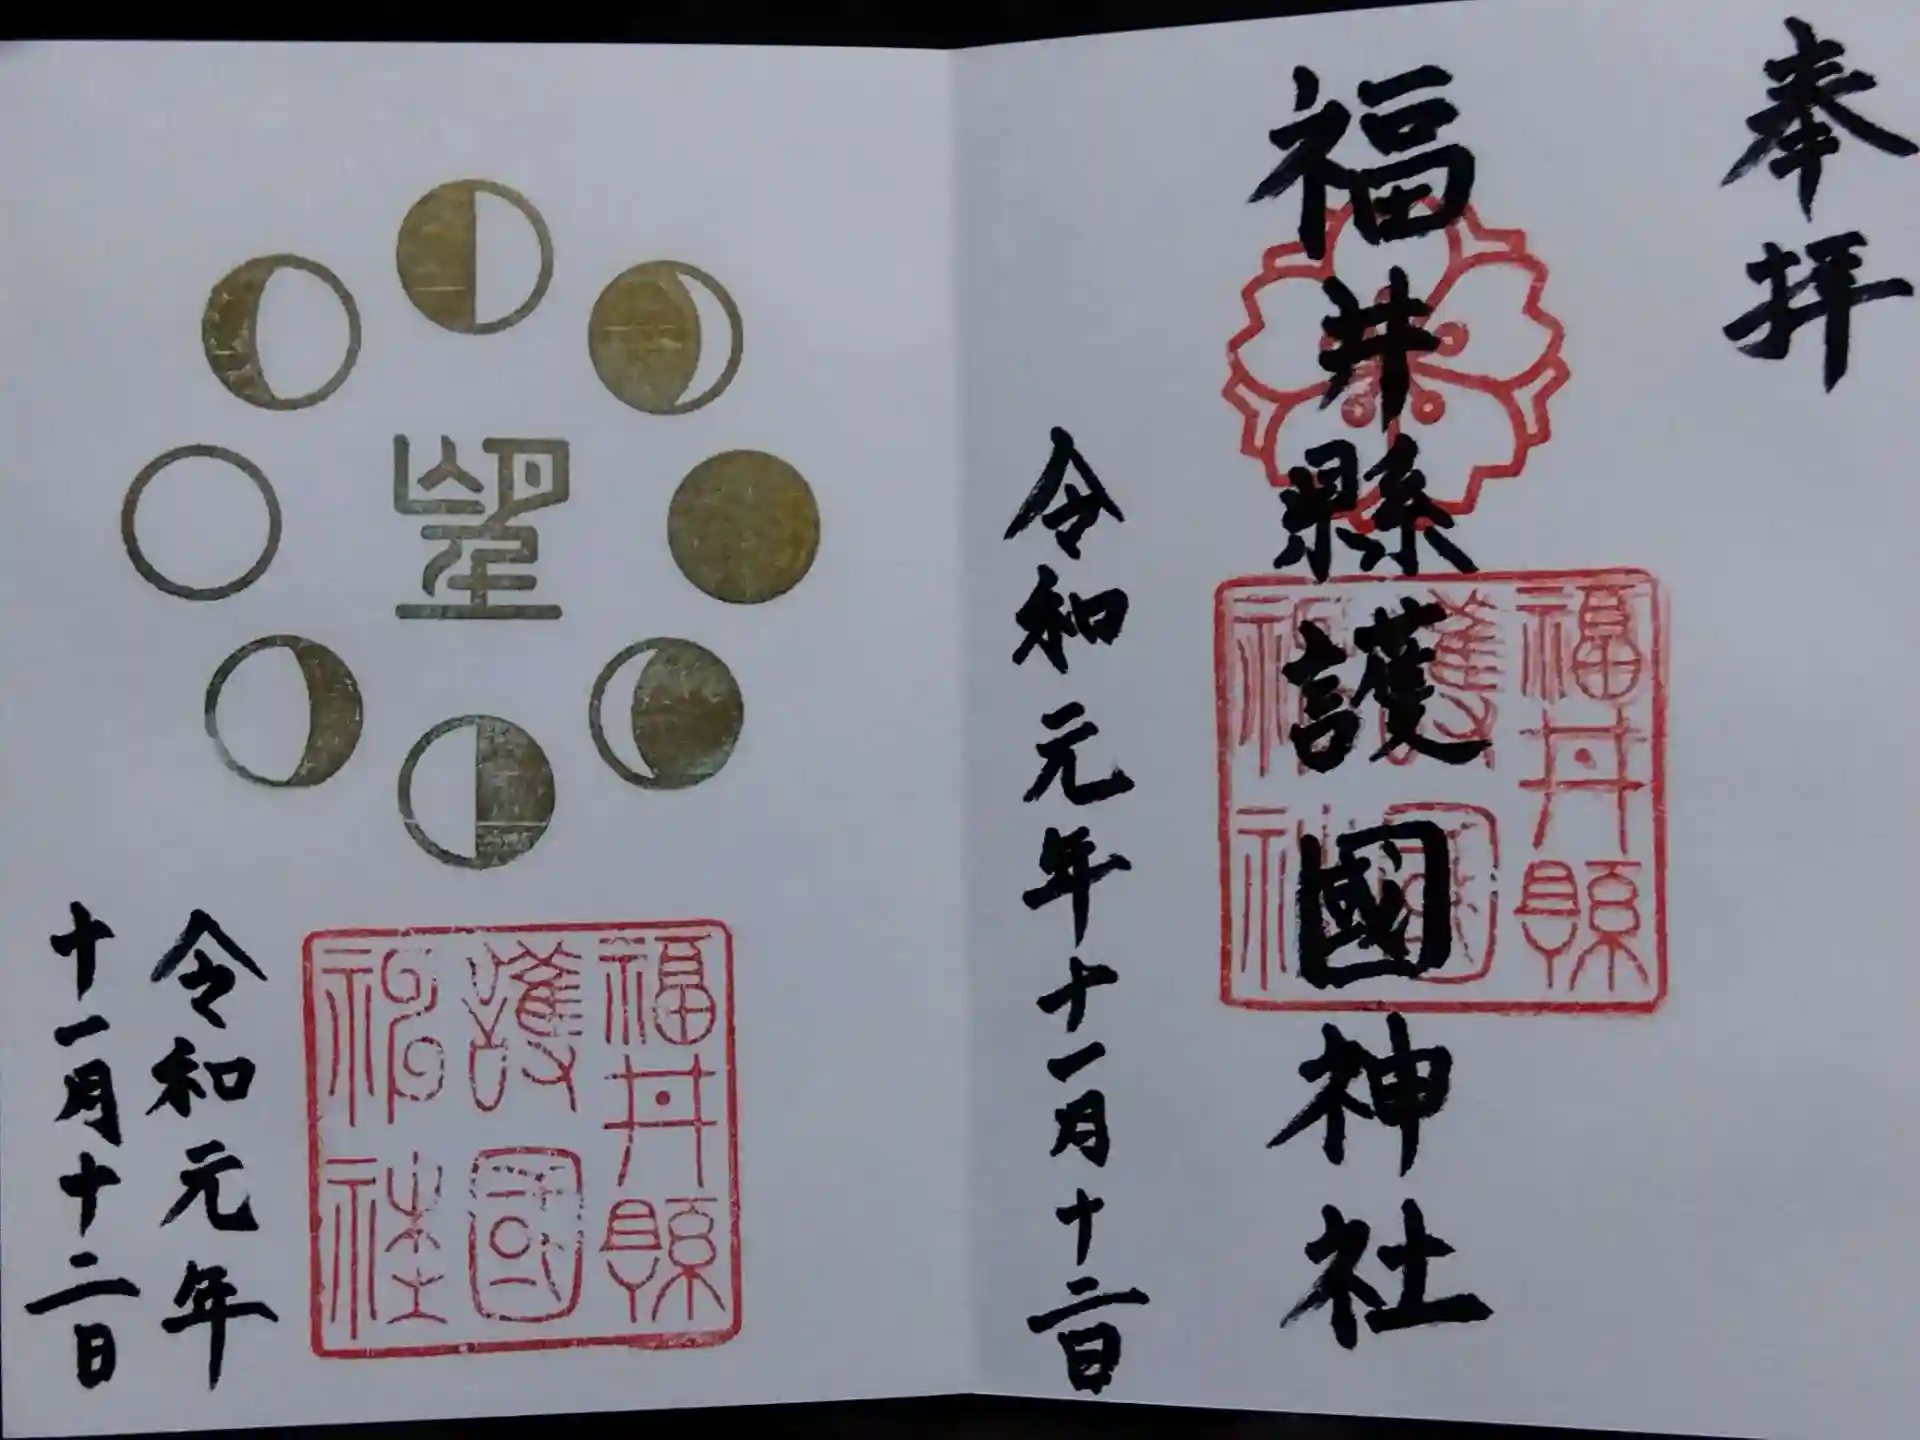 奉拝
福井縣護國神社
福井縣
護國
神社
令和元年十一月十二日
望
福井縣
護國
神社
令和元年
十一月十二日